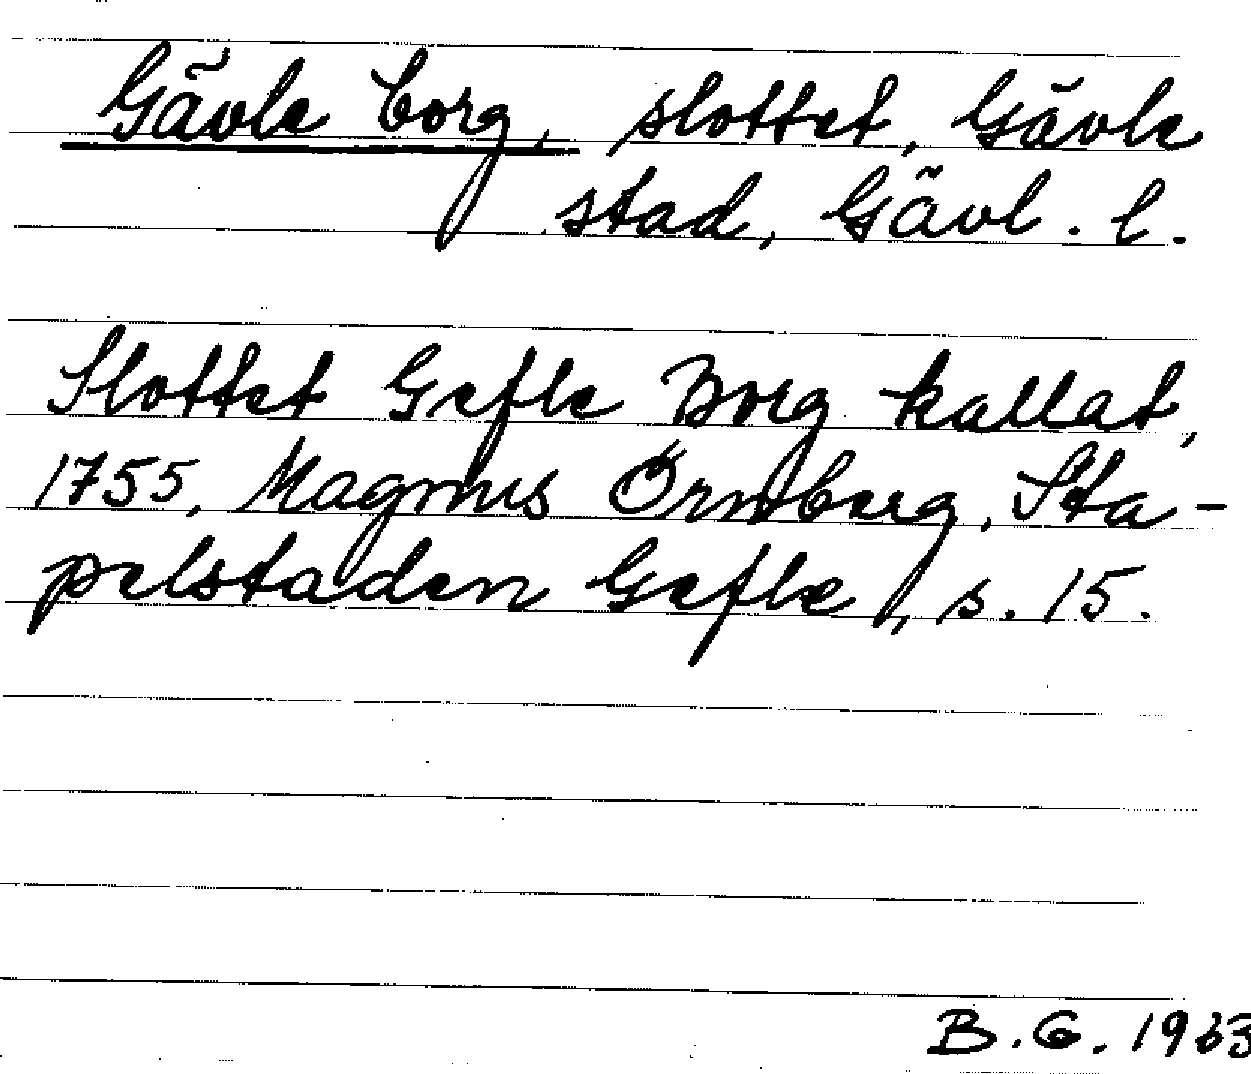 Gävle borg, slottet, Gävle
stad, Gävl. l.
Slottet Gefle Borg kallat,
1755, Magnus Örnberg, Sta-
pelstaden Gefle, s. 15.
B.G. 1963